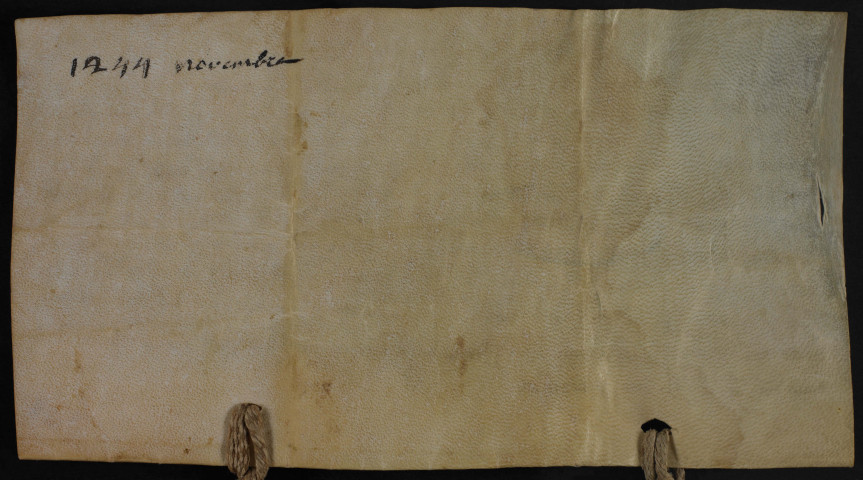 1244 novembre